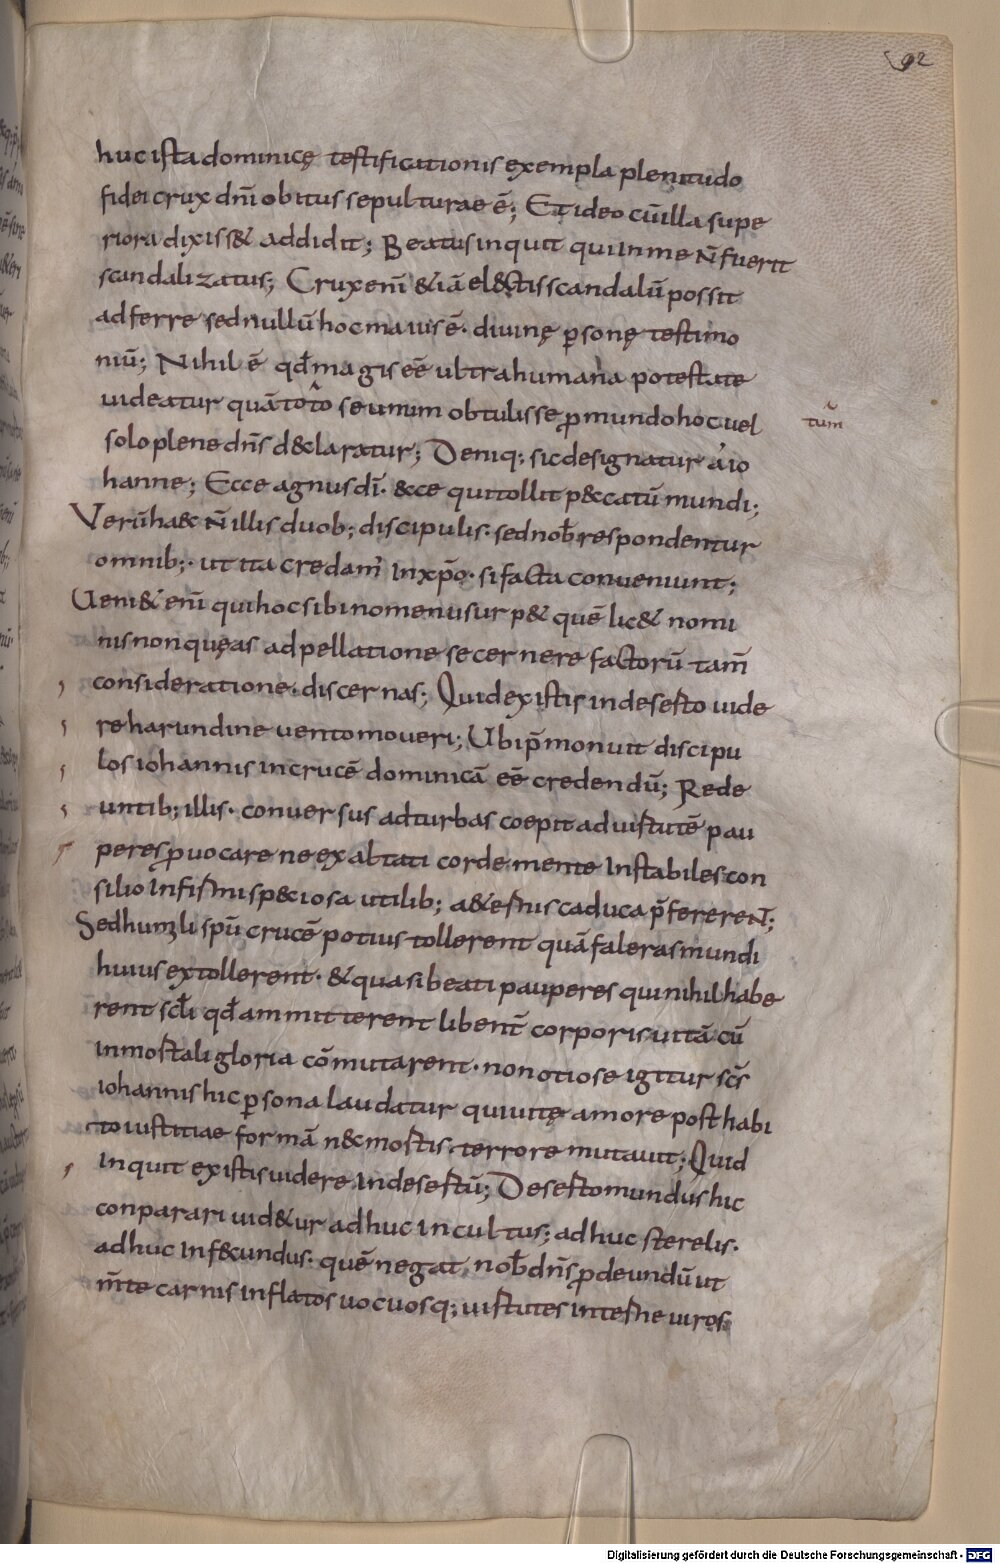 92
huc ista dominicę testificationis exempla plenitudo
fidei crux dn̄i obitus sepulturae ē; Et ideo cū illa supe
riora dixiss& addidit; Beatus inquit qui in me n̄ fuerit
scandalizatus; Crux enī &iā el&ctis scandalū possit
adferre sed nullū hoc maius ē· divinę psonę testimo
niū; Nihil ē qd magis eē ultra humana potestate
uideatur quā toto se unum obtulisse p mundo hoc uel
tum
solo plene dn̄s d&claratur; Deniq; sic designatur a io
hanne; Ecce agnus dī· &cce qui tollit p&catū mundi;
Verū ha& n̄ illis duob; discipulis· sed nob respondentur
omnib;· ut ita credam̄ in xp̄o· si facta conueniunt;
Ueni& enī qui hoc sibi nomen usurp& quē lic& nomi
nis non quęas adpellatione secernere factorū tam̄
consideratione· discernas; Quid existis in deserto uide
re harundine uento moueri; Ubi p̄monuit discipu
los iohannis in crucē dominicā eē credendū; Rede
untib; illis· conuersus ad turbas coepit ad uirtutē pau
peres puocare ne exaltati corde mente instabiles con
silio infirmi sp&ciosa utilib; a&ernis caduca p̄ferereN̄;
Sed humili sp̄u crucē potius tollerent quā faleras mundi
huius extollerent· & quasi beati pauperes qui nihil habe
rent scl̄i qd ammitterent libent̄ corporis uitā cū
inmortali gloria cōmutarent· non otiose igitur sc̄s
iohannis hic psona laudatur qui uitę amore posthabi
to iustitiae formā n& mortis· terrore mutauit; Quid
inquit existis uidere in desertū; Deserto mundus hic
conparari uid&ur adhuc incultus; adhuc sterelis·
adhuc inf&cundus· quē negat nob dn̄s pdeundū ut
m̄te carnis inflatos uocuosq; uirtutes interne uiros
Digitalisierung gefördert durch die Deutsche Forschungsgemeinschaft - DFG